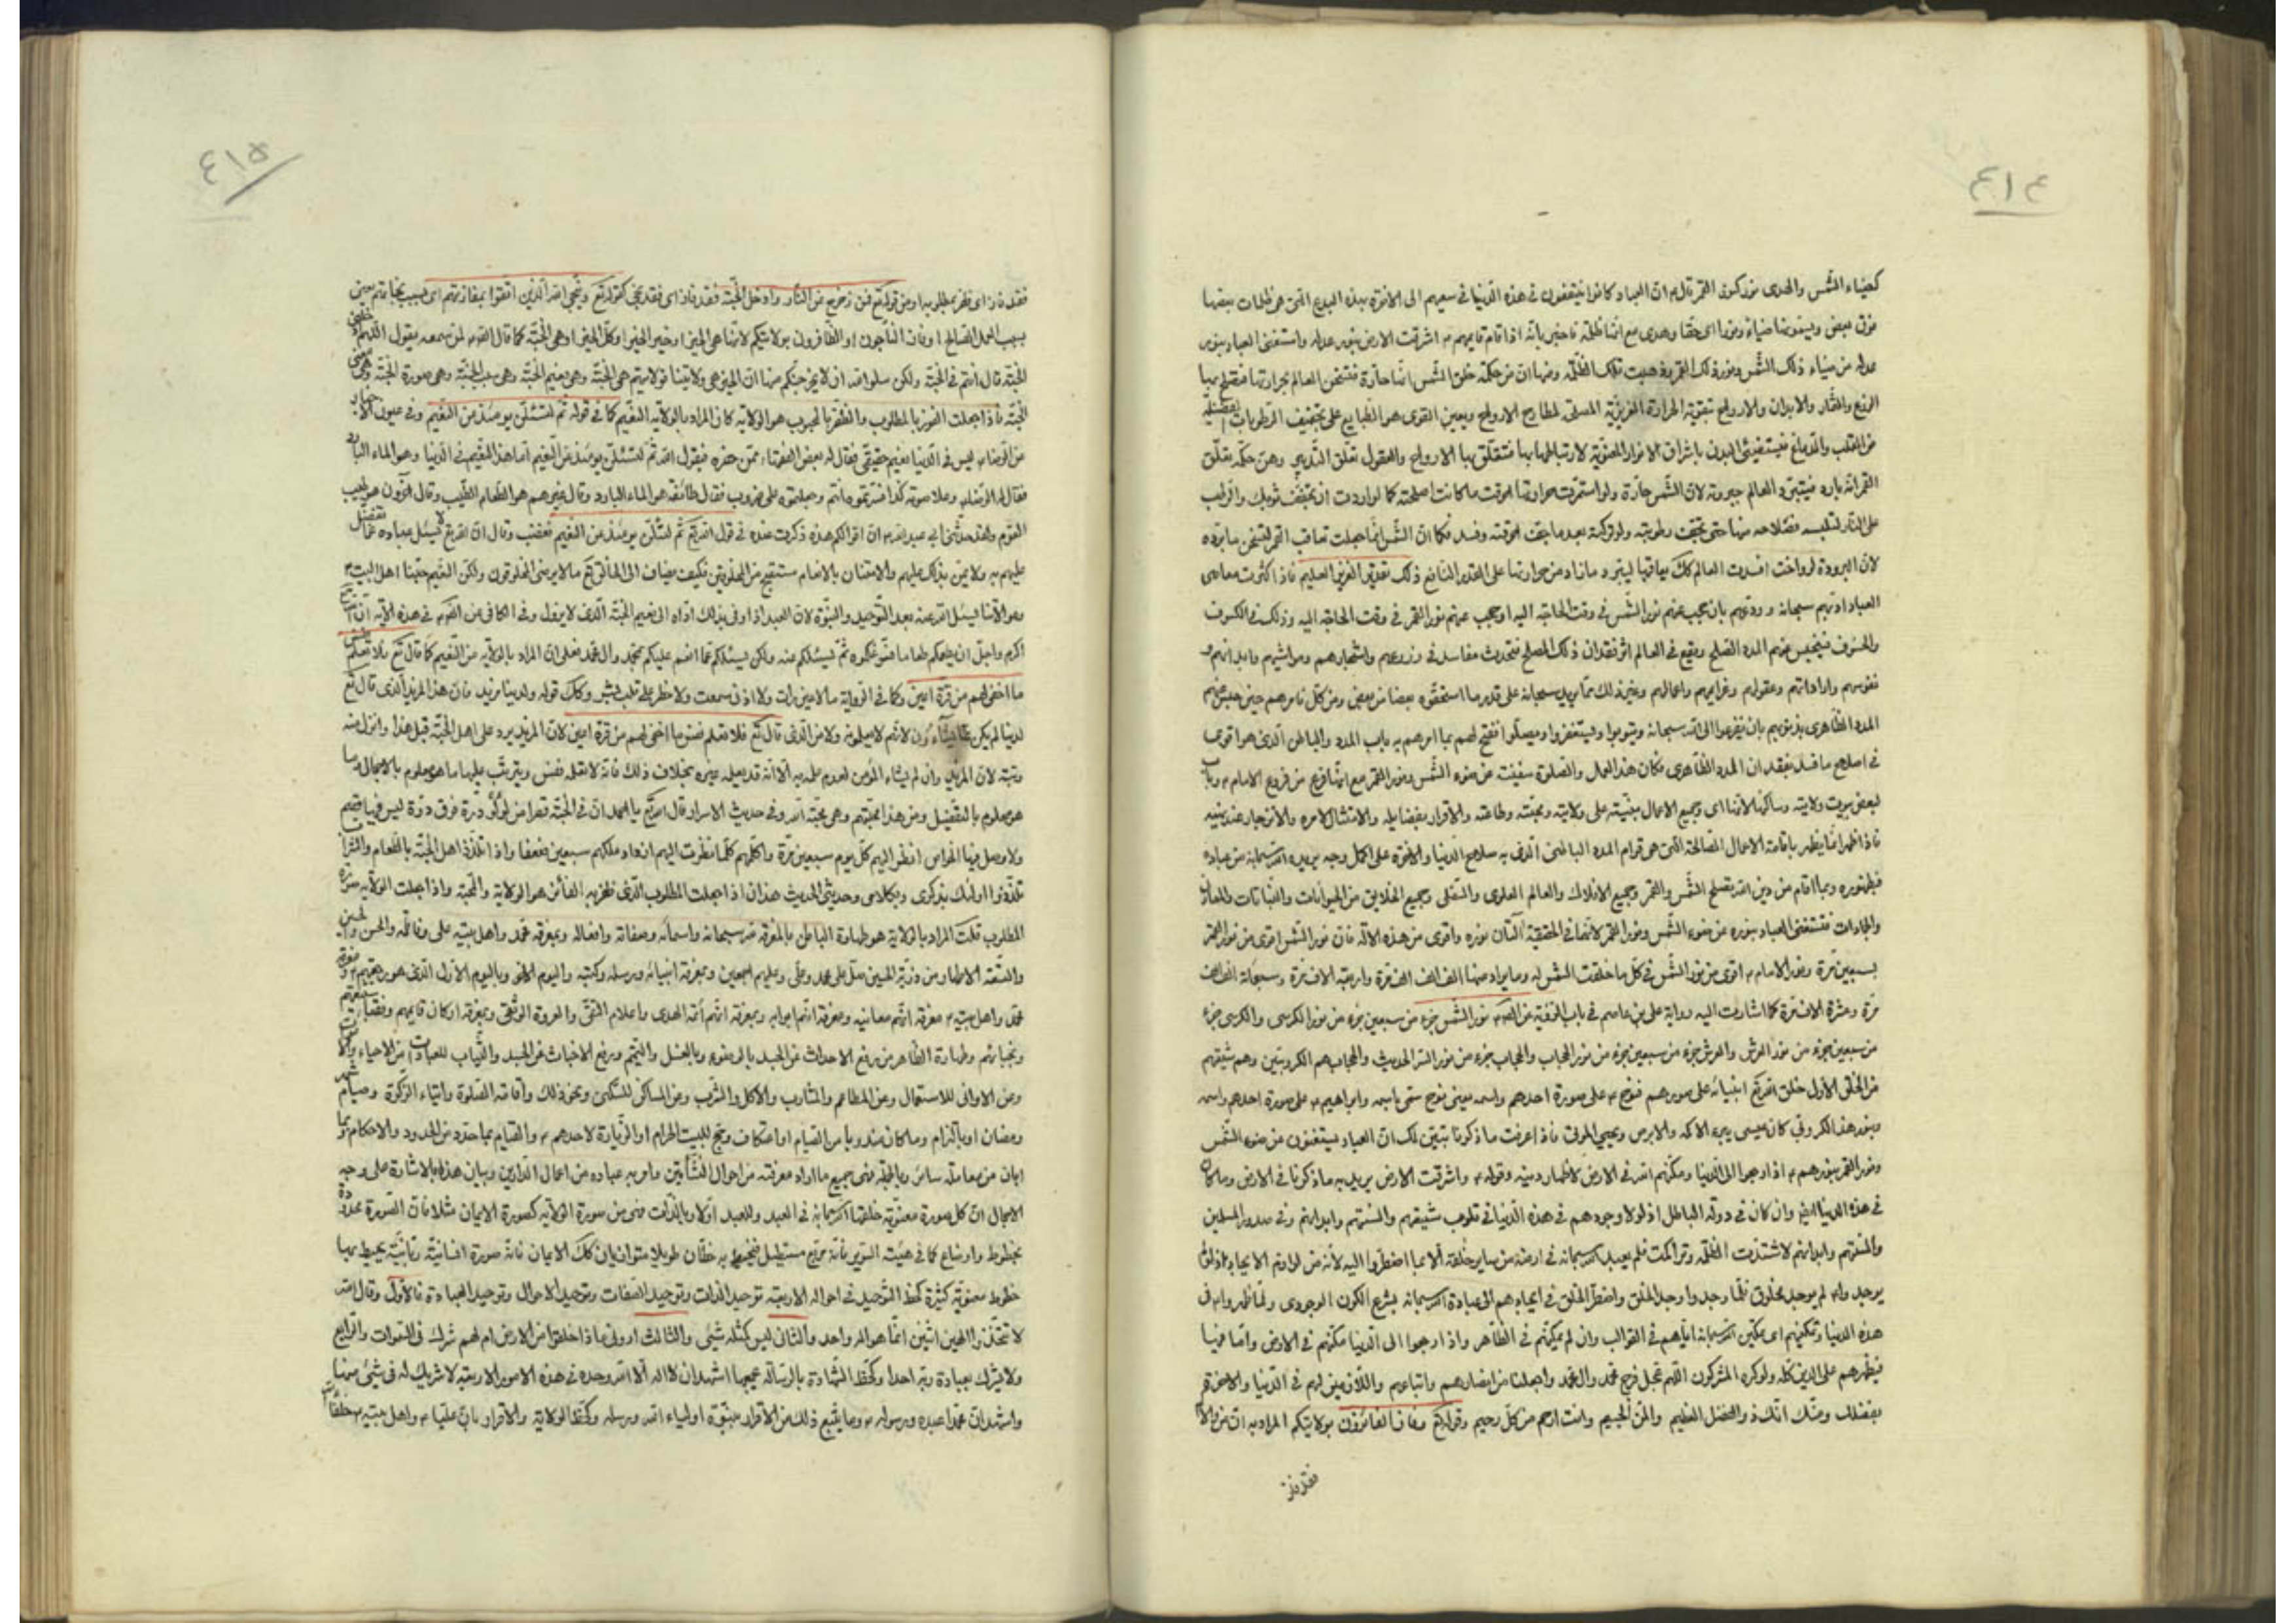 ٤١٤
كضياء الشمس والهدى نور كنور القمر قال ان العباد كانوا ينتفعون في هذه الدنيا في سعيهم الى الاخرة بهذه البدع التي هي ظلمات بعضها
فوق بعض ويسمونها ضياء ونورا اى حقا وهدى مع انها ظلمة فاخبر بانه اذا قام قايمهم اشرقت الارض بنور عدله واستغنى العباد بنور
عدله من ضياء ذلك الشمس ونور ذلك القمر وذهبت تلك الظلمة ومنها ان من حكمة خلق الشمس انها حارة فتسخن العالم بحرارتها فتصلح بها
الزرع والثمار والابدان والارواح بتقوية الحرارة الغريزية
من القلب والدماغ فيستضيئ البدن باشراق الانوار المعنوية لارتباطها بها فتتعلق بها الارواح والعقول تعلق التدبير ومن حكمة تعلق
القمر انه بارد فيتبرد العالم ببرودته لان الشمس حارة ولو استمرت حرارتها احرقت ما كانت اصلحته كما لو اردت ان تجفف ثوبك واقرب
على النار لتلبسه فصلاحه منها حتى تجفف رطوبته ولو تركته بعد ما جفت احرقته وفسد فكما ان الشمس انما جعلت تعاقب القمر لتسخن ما برده
لان البرودة لو داخت افسدت العالم كك يعاقبها ليبرد ما زاد من حرارتها على القدر النافع ذلك تقدير العزيز العليم فاذا كثرت معاصى
العباد ادبهم سبحانه وردعهم بان يحجب عنهم نور الشمس في وقت الحاجة اليه او يحجب عنهم نور القمر في وقت الحاجة اليه وذلك في الكسوف
والخسوف فيحبس عنهم المدد المصلح ويقع في العالم اثر فقدان ذلك المصلح فتحدث مفاسد في زروعهم واشجارهم ومواشيهم وابدانهم و
نفوسهم واراداتهم وعقولهم وغرايمهم واعمالهم وغير ذلك مما يريد سبحانه على قدر ما استحقوه بعضا من بعض ومن كل فامرهم حين حبس عنهم
المدد الظاهرى بذنوبهم بان يفزعوا الى الله سبحانه ويتوبوا وليستغفروا ويصلوا افتح لهم بما امرهم به باب المدد والباطن الذى هو اقوى مما
في اصلاح ما فسد بفقدان المدد الظاهرى فكان هذا العمل والصلوة يغنيت عن ضوء الشمس ونور القمر مع انها فرع من فروع الامام وباب
لبعض بيوت ولايته وساكنها لانها اى جميع الاعمال مبنية على ولايته ومحبته وطاعته والاقرار بفضايله والامتثال لامره والانزجار عند نهيه
فاذا ظهر انما يظهر باقامة الاعمال الصالحة التى هى قوام المدد الباطنى الذى به صلاح الدنيا والاخرة على اكمل وجه يريده الله سبحانه من عباده
فبظهوره وبما اقام من دين الله تصلح الشمس والقمر وجميع الافلاك والعالم العلوى والسفلى وجميع الخلايق من الحيوانات والنباتات والمعادن
والجمادات فتستغنى العباد بنوره عن ضوء الشمس ونور القمر لانهما في الحقيقة
بسبعين مرة ونور الامام اقوى من نور الشمس في كل ما خلقت الشمس له وما يراد منها الف الف الف مرة واربعة الاف مرة
مرة وعشرة الاف مرة كما اشارت اليه رواية على بن عاصم في باب الرؤية نور الشمس جزء من سبعين جزء من نور الكرسى والكرسى جزء
من سبعين جزء من نور العرش والعرش جزء من سبعين جزء من نور الحجاب والحجاب جزء من نور الستر الحديث والحجاب هم الكروبيين وهم شيعتهم
من الخلق الاول خلق الله تع انبيائه على صورهم فنوح على صورة احدهم واسمه يعنى نوح سمى باسمه وابراهيم على صورة احدهم واسمه
وبنور هذا الكروبى كان عيسى يبرء الاكمه والابرص ويحيى الموتى فاذا عرفت ما ذكرنا تبين لك ان العباد يستغنون عن ضوء الشمس
ونور القمر بنورهم اذا رجعوا الى الدنيا ومكنهم الله في الارض لاظهار دينه وقوله واشرقت الارض يريد به ما ذكرنا في الارض وما كان
في هذه الدنيا ايض وان كان في دولة الباطل اذ لولا وجودهم في هذه الدنيا في قلوب شيعتهم والسنتهم وابدانهم وفي صدور المسلمين
والسنتهم وابدانهم لاشتدت الظلمة وتراكمت فلم يعبد الله سبحانه في ارضه من ساير خلقه الا بما اضطروا اليه
يوجد واه لم يوجد مخلوق فلما وجد واوجد الخلق واضطر الخلق في ايجادهم الى عبادة الله سبحانه بشرع الكون الوجودى
هذه الدنيا وتمكينهم اى تمكين الله سبحانه اياهم في القوالب وان لم يمكنهم في الظاهر واذا رجعوا الى الدنيا مكنهم في الارض
فيظهرهم على الدين كله ولو كره المشركون اللهم عجل فرج محمد وال محمد واجعلنا من انصارهم واتباعهم في الدنيا والاخرة
بفضلك ومنك انك ذو الفضل العظيم والمن الجسيم وانت ارحم من كل رحيم وقوله وفاز الفائزون بولايتكم المراد به ان
فقد فاز
٤١٥
فقد فاز اى ظفر بمطلوبه او من قوله تع فمن زحزح عن النار وادخل الجنة فقد فاز اى فقد نجى كقوله تع وينجى الله الذين اتقوا بمفازتهم اى بسبب نجاتهم يعنى
بسبب العمل الصالح او فاز الناجون او الظافرون بولايتكم لانها هى الخير او خير الخير او كل الخير او هى الجنة كما قال لمن سمعه يقول اللهم
الجنة قال انتم في الجنة ولكن سلوا الله ان لا يخرجكم منها ان الجنة هى ولايتنا فولايتهم هى الجنة وهى نعيم الجنة وهى صورة الجنة
الجنة فاذا جعلت الفوز بالمطلوب والظفر بالمحبوب هو الولاية كان المراد بالولاية النعيم كما في قوله ثم لتسئلن يومئذ عن النعيم وفي عيون الاخبار
عن الرضا ليس في الدنيا نعيم حقيقى فقال له بعض الفقهاء ممن حضره فيقول الله ثم لتسئلن يومئذ عن النعيم اما هذا النعيم في الدنيا وهو الماء البارد
فقال له الرضا وعلا صوته كذا فسرتموه انتم وجعلتموه على ضروب فقال طائفة هو الماء البارد وقال غيرهم هو الطعام الطيب وقال اخرون هو طيب
النوم ولقد حدثنى ابى ان اقوالكم هذه ذكرت عنده في قول الله تع ثم لتسئلن يومئذ عن النعيم فغضب وقال ان الله تع لا يسئل عباده عما تفضل
عليهم به ولا يمن بذلك عليهم والامتنان بالانعام مستقبح من المخلوقين فكيف يضاف الى الخالق تع ما لا يرضى المخلوقون ولكن النعيم حبنا اهل البيت
وموالاتنا يسئل الله عنه بعد التوحيد والنبوة لان العبد اذا وفى بذلك اداه الى نعيم الجنة الذى لا يزول وفي الكافى في هذه الاية ان الله
اكرم واجل ان يطعمكم طعاما فسوغكموه ثم يسئلكم عنه ولكن يسئلكم عما انعم عليكم بمحمد وال محمد فعلى ان المراد بالولاية من النعيم كما قال تع فلا تعلم نفس
ما اخفى لهم من قرة اعين وكما في الرواية ما لا عين رات ولا اذن سمعت ولا خطر على قلب بشر وكك قوله ولدينا مزيد فان هذا المزيد الذى قال تع
لدينا لم يكن مما يشاؤن لانهم لا يعلمونه ولا من الذى قال تع فلا تعلم نفس ما اخفى لهم من قرة اعين لان المزيد يرد على اهل الجنة قبل هذا وانزل منه
رتبة لان المزيد وان لم يشاء المؤمن لعدم علمه به الا انه قد يعلمه غيره بخلاف ذلك فانه لا تعلمه نفس ويترتب عليها ما هو معلوم بالاجمال وما
هو معلوم بالتفصيل ومن هذا محبتهم وهى محبة الله وفي حديث الاسرار قال الله تع يا احمد ان في الجنة قصرا من لؤلؤ ودرة فوق درة ليس فيها قصم
ولا وصل فيها الخواص انظر اليهم كل يوم سبعين مرة واكلمهم كلما نظرت اليهم ازداد ملكهم سبعين ضعفا واذا تلذذ اهل الجنة بالطعام والشراب
تلذذوا اولئك بذكرى وبكلامى وحديثى الحديث هذا ان اذا جعلت المطلوب الذى ظفر به الفائز هو الولاية والمحبة واذا جعلت الولاية
المطلوب قلت المراد بالولاية هو طهارة الباطن بالمعرفة لله سبحانه واسمائه وصفاته وافعاله وبمعرفة محمد واهل بيته على وفاطمة والحسن والحسين
والتسعة الاطهار من ذرية الحسين صل على محمد وعلى وعليهم اجمعين وبمعرفة انبيائه ورسله وكتبه واليوم الاخر وباليوم الاول
محمد واهل بيته معرفة انهم معانيه ومعرفة انهم ابوابه وبمعرفة انهم ائمة الهدى واعلام التقى والعروة الوثقى وبمعرفة اركان
ونجبائهم وطهارة الظاهر من رفع الاحداث عن الجسد بالوضوء وبالغسل والتيمم ورفع الاخباث عن الجسد والثياب للعبادات
ومن الاوانى للاستعمال ومن المطاعم والمشارب والاكل والشرب ومن المساكن للسكنى ونحو ذلك واقامة الصلوة وايتاء الزكوة وصيام شهر
رمضان او بالتزام وما كان مندوبا من الصيام او اعتكاف وحج للبيت الحرام او الزيارة لاحدهم والقيام بما حدد من الحدود والاحكام وبما
ابان من معاملة ساير وبالجملة فهى جميع ما اراد معرفته من احوال النشأتين وامر به عباده من اعمال الدارين وبيان هذا بالاشارة على وجه
الاجمال ان كل صورة معنوية خلقها الله سبحانه في العبد وللعبد اولا وبالذات فهى من صورة الولاية كصورة الايمان مثلا فان الصورة محدودة
بخطوط واوضاع كما في هيئة السرير فانه مربع مستطيل فيحيط به خطان طويلا متوازيان كك الايمان فانه صورة انسانية يحيط بها
خطوط معنوية كثيرة كخط التوحيد في احواله الاربعة توحيد الذات وتوحيد الصفات وتوحيد الافعال وتوحيد العبادة فالاول وقال الله
لا تتخذوا الهين اثنين انما هو اله واحد والثانى ليس كمثله شئ والثالث ارونى ماذا خلقوا من الارض ام لهم شرك في السموات والرابع
ولا يشرك بعبادة ربه احدا وكخط الشهادة بالرسالة اشهد ان لا اله الا الله وحده في هذه الامور الاربعة لا شريك له في شئ منها
واشهد ان محمدا عبده ورسوله وما يتبع ذلك من الاقرار بنبوة اولياء الله ورسله وكخط الولاية والاقرار بان عليا واهل بيته